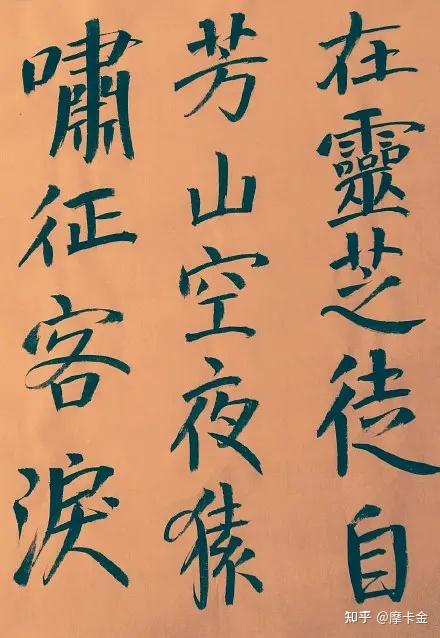 在靈芝徒自
芳山空夜猿
嘯征客淚
知乎 @摩卡金